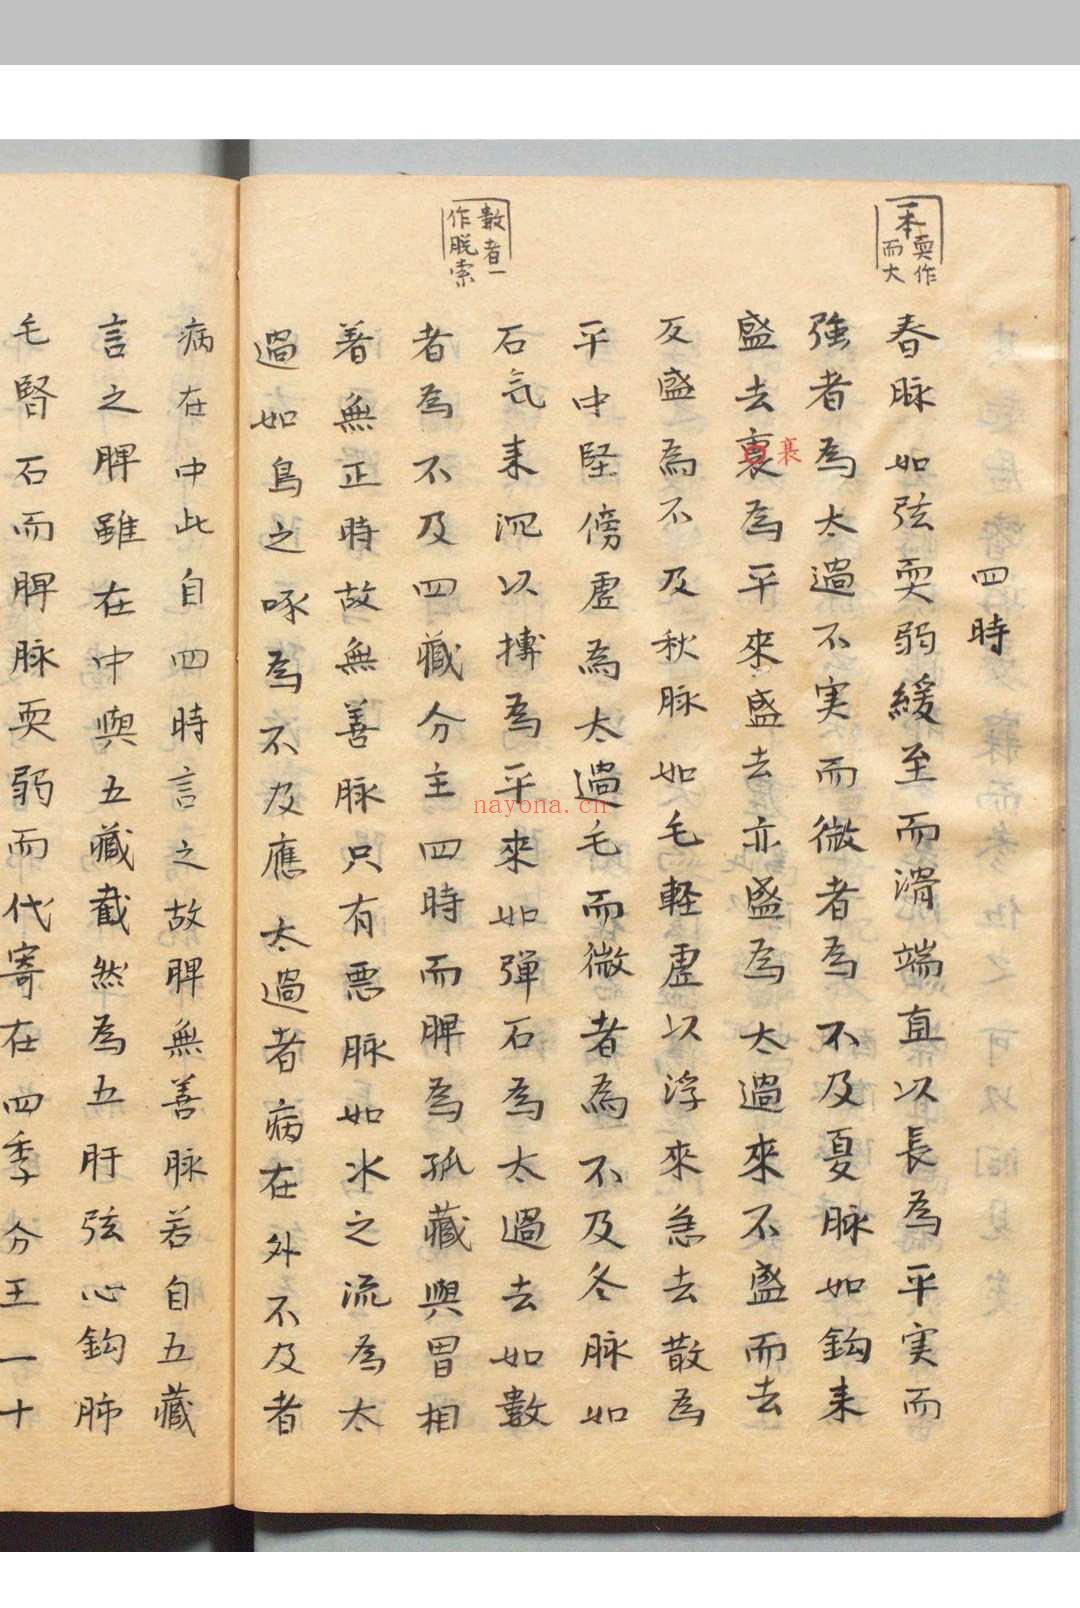 一本耎作
而大
數者一
作脱索
四時
春脉如弦耎弱緩至而滑端直以長為平実而
強者為太過不実而微者為不及夏脉如鈎来
盛去裏為平來盛去亦盛為太過來不盛而去
衰
反盛為不及秋脉如毛軽虚以浮來急去散為
平中堅傍虚為太過毛而微者為不及冬脉如
石気来沉以摶為平來如弾石為太過去如數
者為不及四藏分主四時而脾為孤藏與胃相
著無正時故無善脉只有悪脉如水之流為太
過如鳥之啄為不及應太過者病在外不及者
病在中此自四時言之故脾無善脉若自五藏
言之脾雖在中與五藏截然為五肝弦心鈎肺
毛腎石而脾脉耎弱而代寄在四季分王一十
nayona.cn